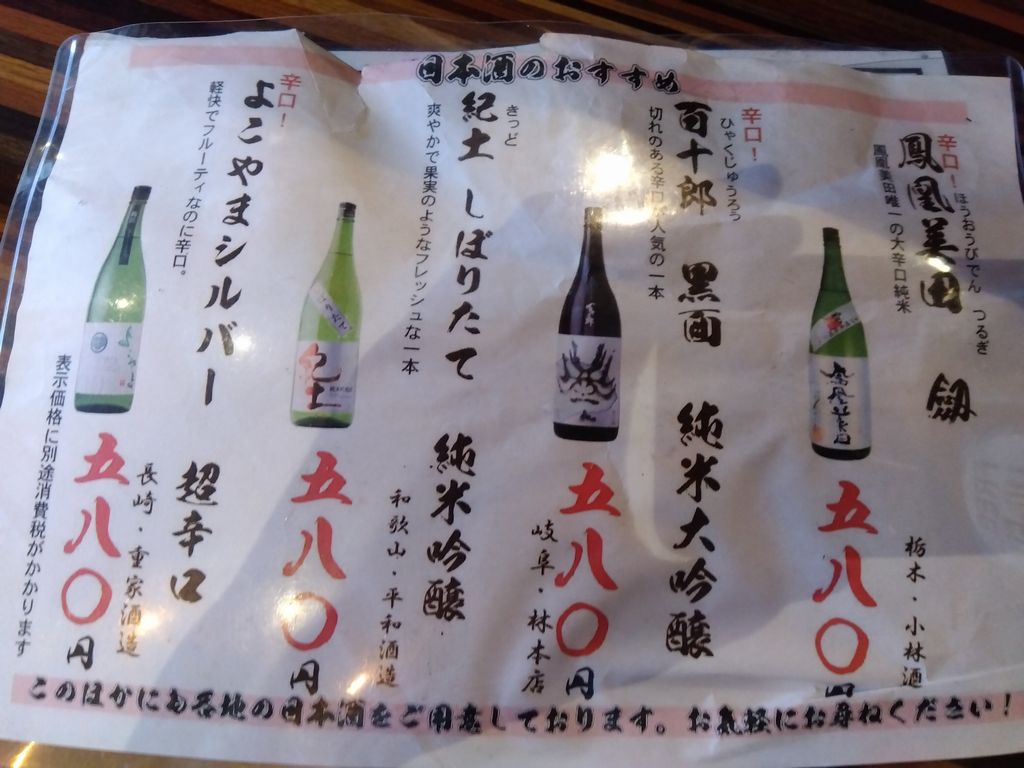 日本酒のおすすめ
辛口！
ほうおうびでん つるぎ
鳳凰美田 劔
鳳凰美田唯一の大辛口純米
栃木・小林酒
五八〇円
辛口！
ひゃくじゅうろう
百十郎 黒面 純米大吟醸
切れのある辛口 人気の一本
岐阜・林本店
五八〇円
きっど
紀土 しぼりたて 純米吟醸
爽やかで果実のようなフレッシュな一本
和歌山・平和酒造
五八〇円
辛口！
よこやまシルバー 超辛口
軽快でフルーティなのに辛口。
長崎・重家酒造
五八〇円
表示価格に別途消費税がかかります
このほかにも各地の日本酒をご用意しております。お気軽にお尋ねください！